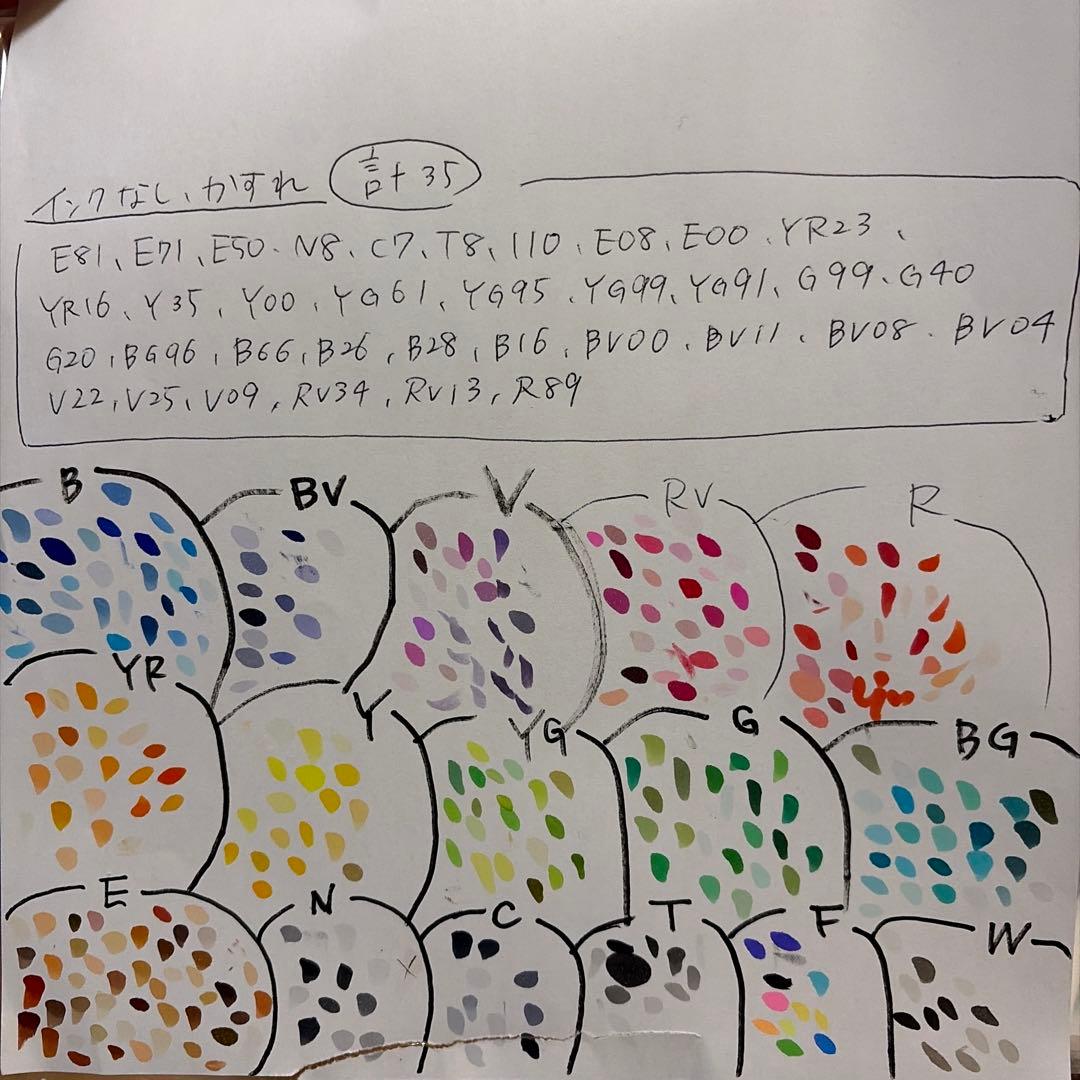 インクなし、かすれ 計35
E81、E71、E50、N8、C7、T8、110、E08、E00、YR23、
YR16、Y35、Y00、YG61、YG95、YG99、YG91、G99、G40
G20、BG96、B66、B26、B28、B16、BV00、BV11、BV08、BV04
V22、V25、V09、RV34、RV13、R89
B BV V RV R
YR Y YG G BG
E N C T F W